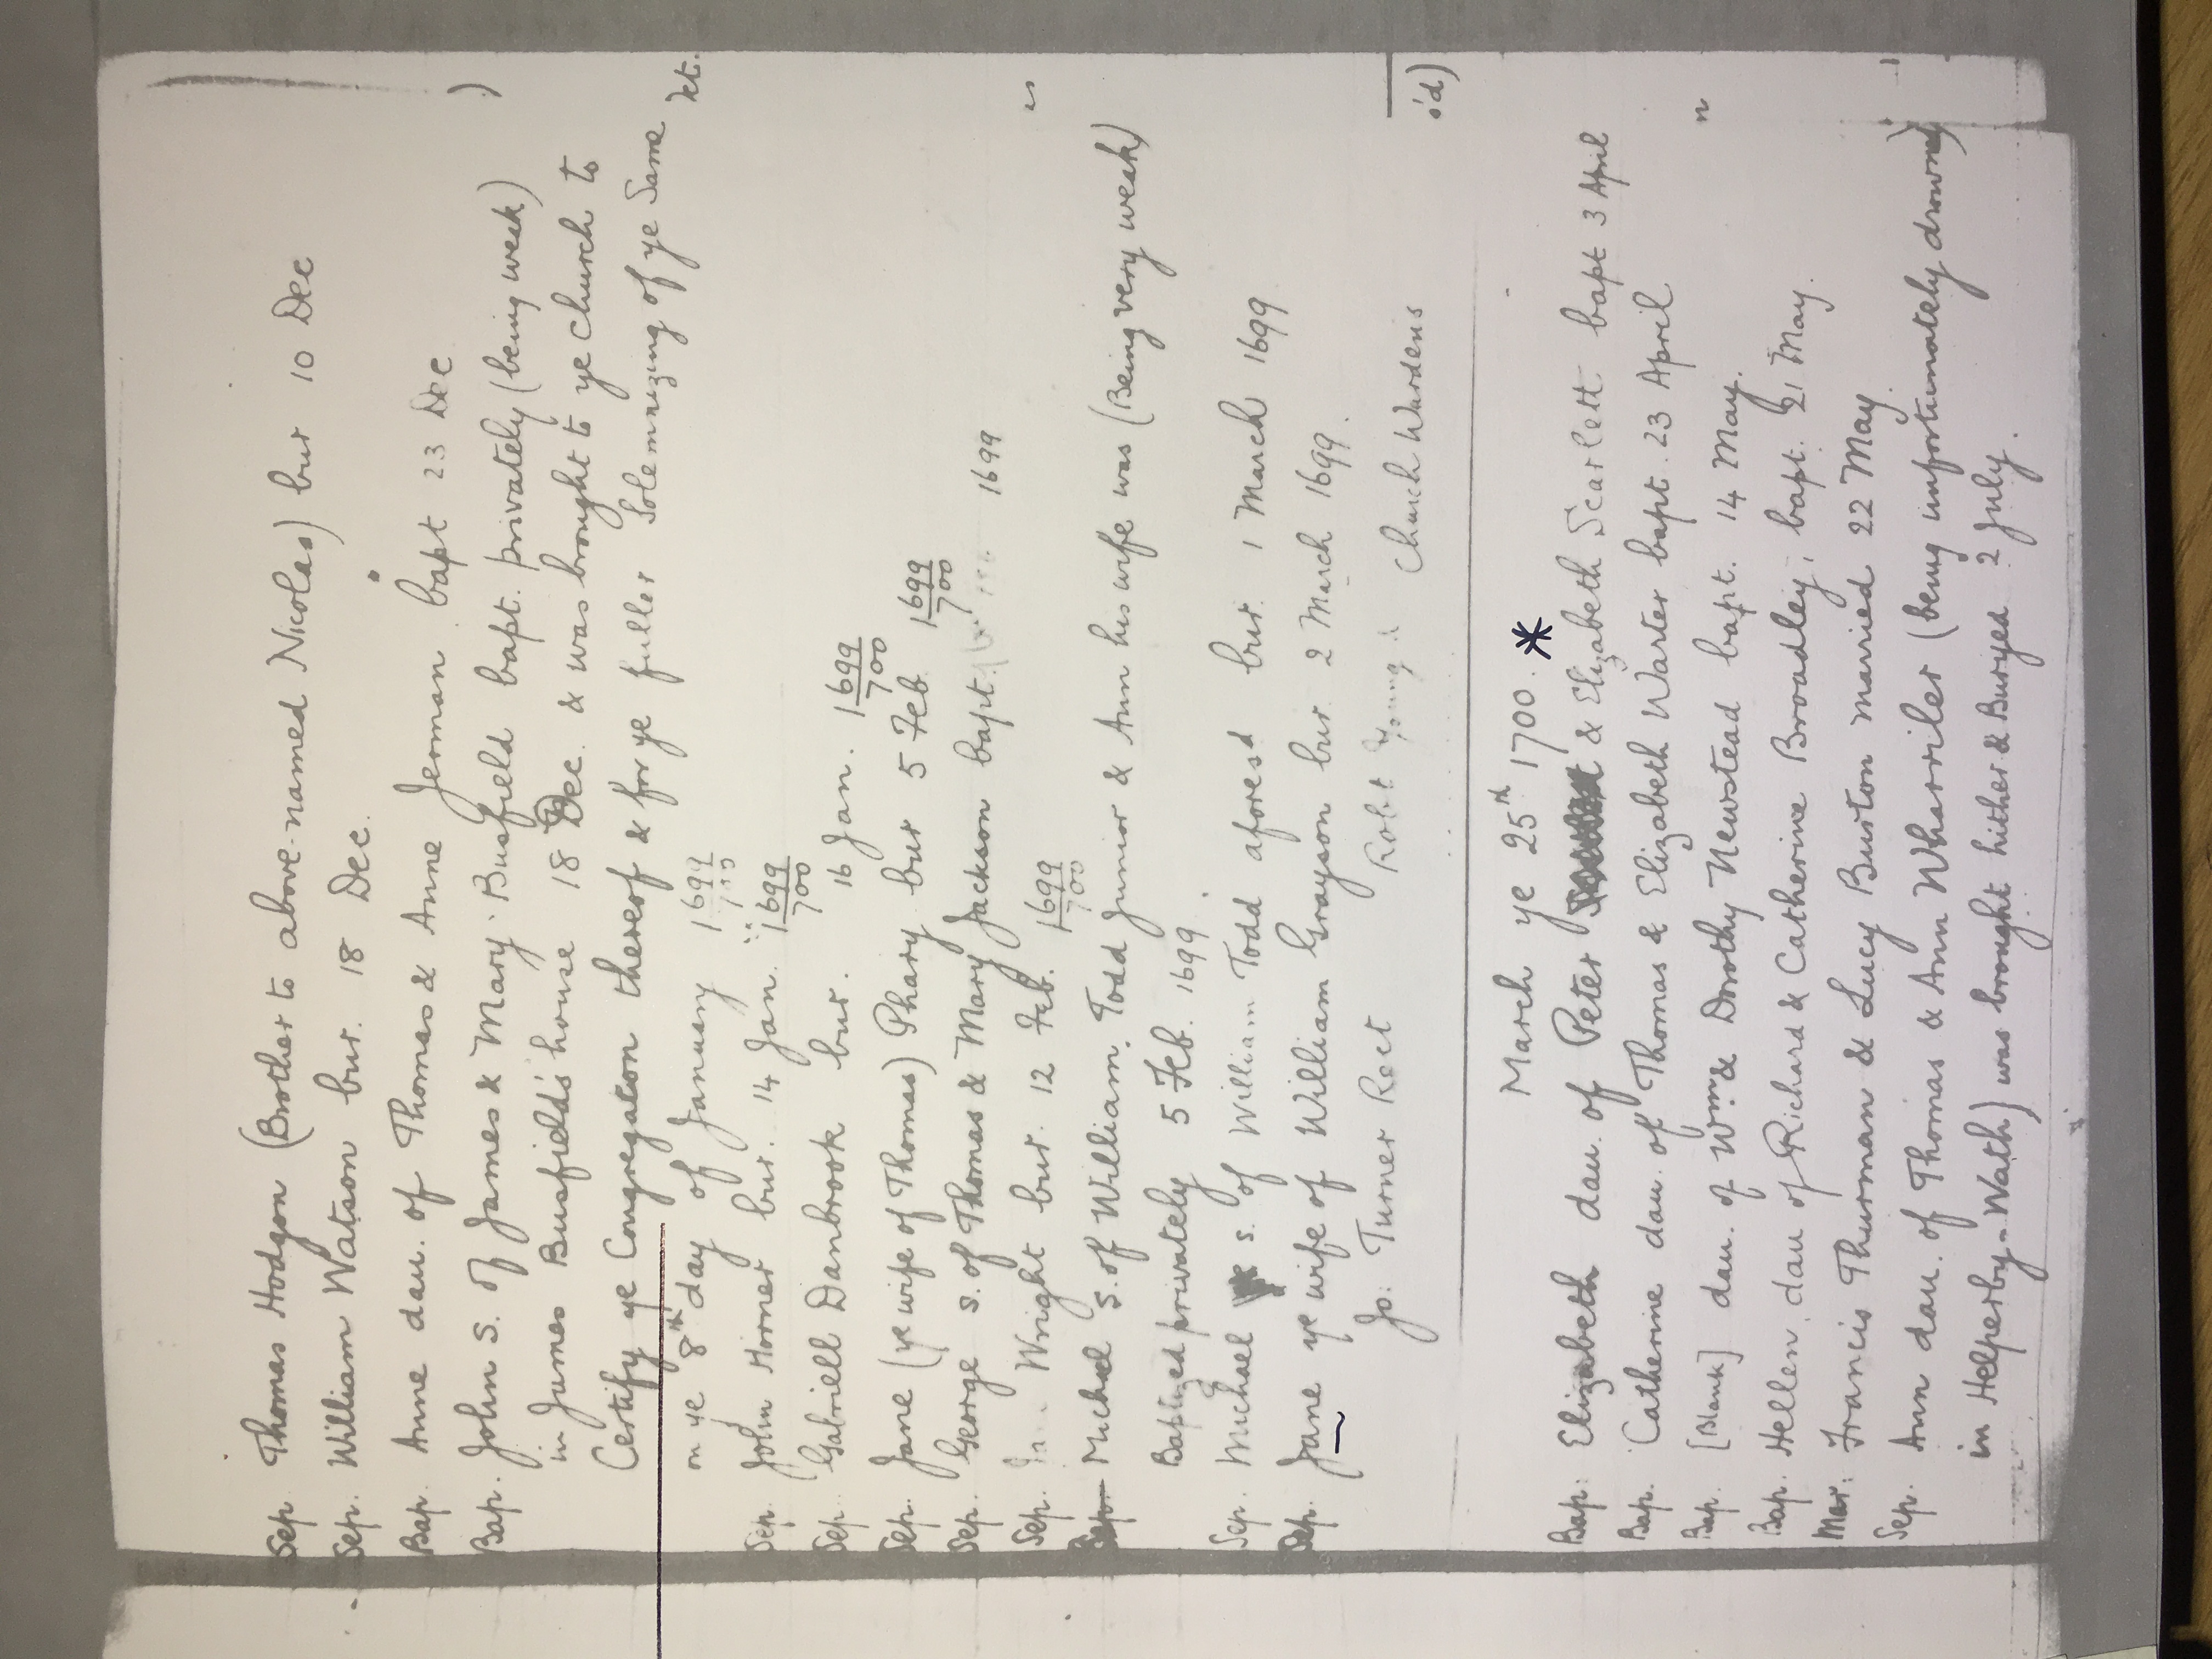 Sep. Thomas Hodgson (Brother to above-named Nicolas) bur 10 Dec
Sep. William Watson bur. 18 Dec.
Bap. Anne dau. of Thomas & Anne Jerman bapt 23 Dec
Bap. John S. of James & Mary Busfield bapt. privately (being weak)
in James Busfield's house 18 Dec. & was brought to ye Church to
Certify ye Congregation thereof & for ye fuller Solemnizing of ye Same
on ye 8th day of January 1699
Sep. John Horner bur. 14 Jan. 1699/700
Sep. Gabriell Danbrook bur. 16 Jan. 1699/700
Sep. Jane (ye wife of Thomas) Phary bur 5 Feb. 1699/700
Sep. George S. of Thomas & Mary Jackson bapt. 1699
Sep. Wright bur. 12 Feb. 1699/700
Michael S. of William Todd Junior & Ann his wife was (Being very weak)
Baptized privately 5 Feb. 1699
Sep. Michael s. of William Todd aforesd bur. 1 March 1699
Sep. Jane ye wife of William Grayson bur 2 March 1699.
Jo: Turner Rect Robt Young Church Wardens
March ye 25th 1700. *
Bap: Elizabeth dau. of Peter & Elizabeth Scarlett bapt 3 April
Bap. Catherine dau. of Thomas & Elizabeth Warter bapt. 23 April
Bap. [Blank] dau. of Wm. & Dorothy Newstead bapt. 14 May.
Bap. Hellen dau of Richard & Catherine Broadley, bapt. 21 May.
Mar: Francis Thurman & Lucy Burton married 22 May
Sep. Ann dau. of Thomas & Ann Wharriler (being unfortunately drowned
in Helperby-Wath) was brought hither & Buryed 2 July.